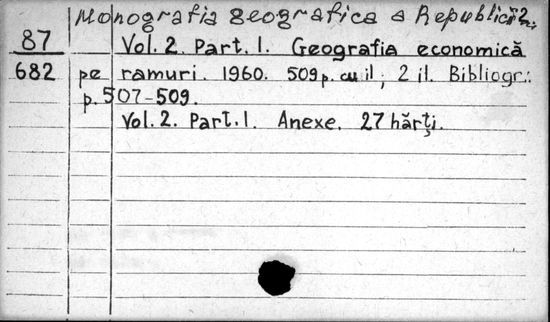 Monografia geografica a Republicii 2.
87 Vol. 2. Part. I. Geografia economică
682 pe ramuri. 1960. 509 p. cu il; 2 il. Bibliogr.:
p. 507-509.
Vol. 2. Part. I. Anexe. 27 hărți.